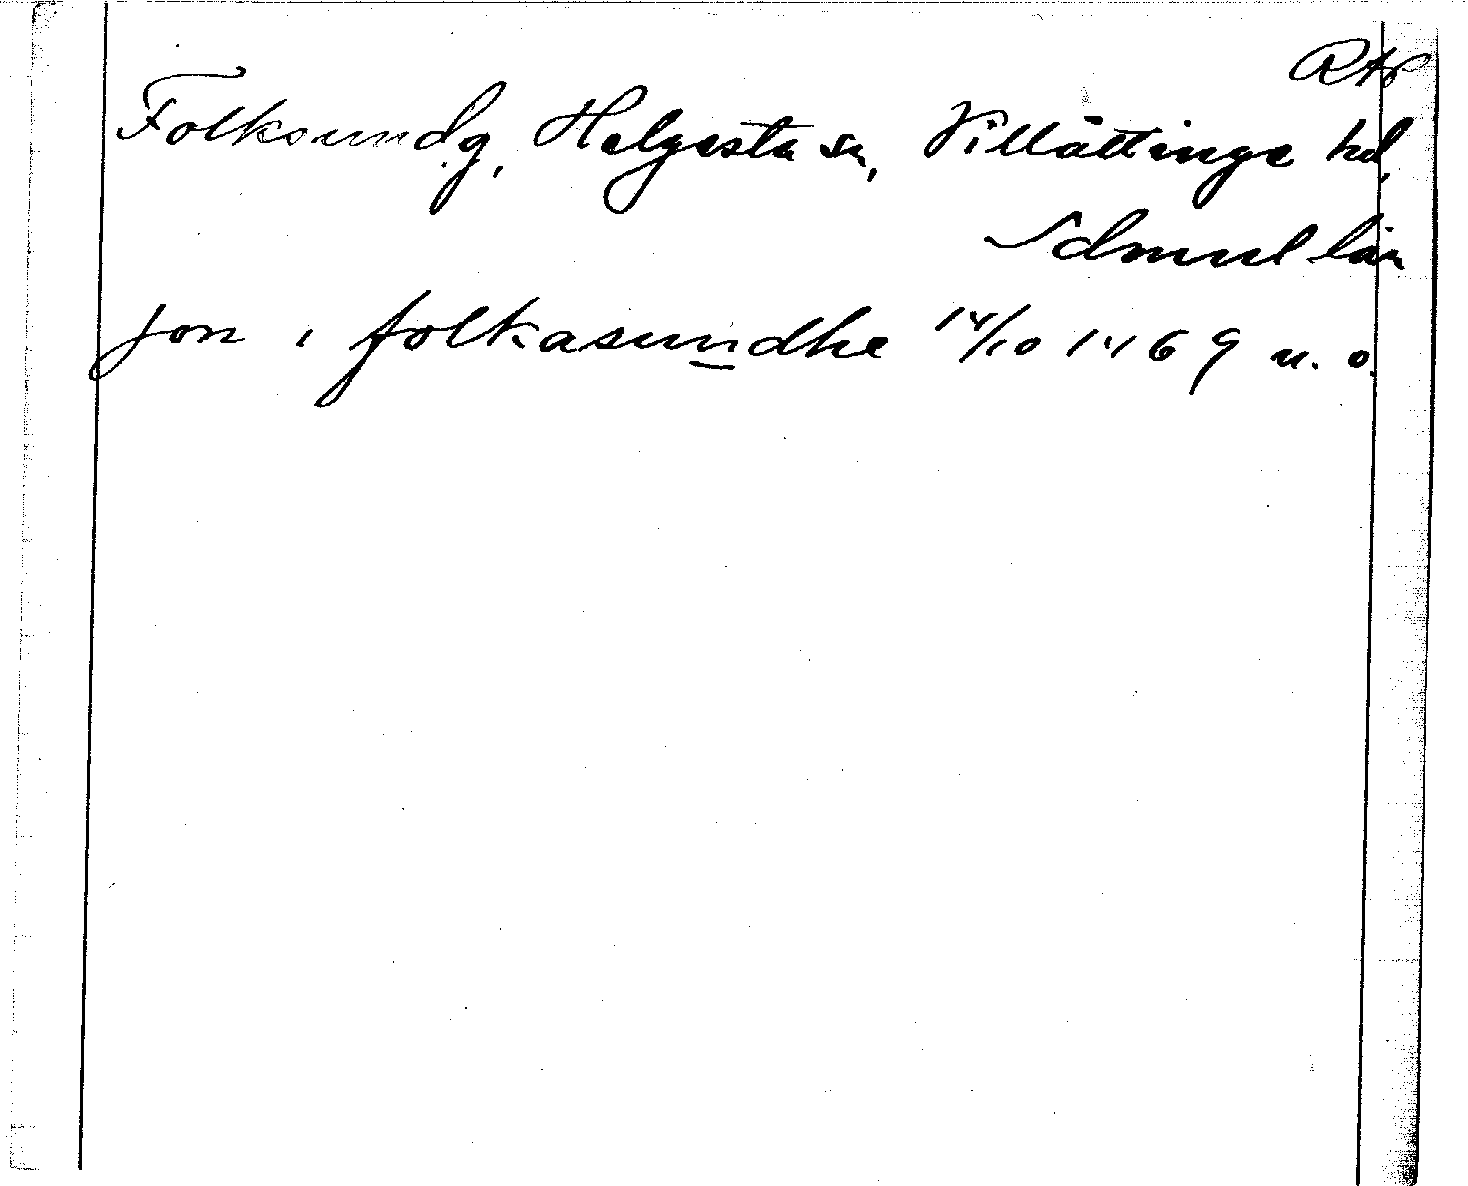 RAp
Folksund g, Helgesta sn, Villåttinge hd,
Sdmnl län
jon i folkasundhe 14/10 1469 u. o.